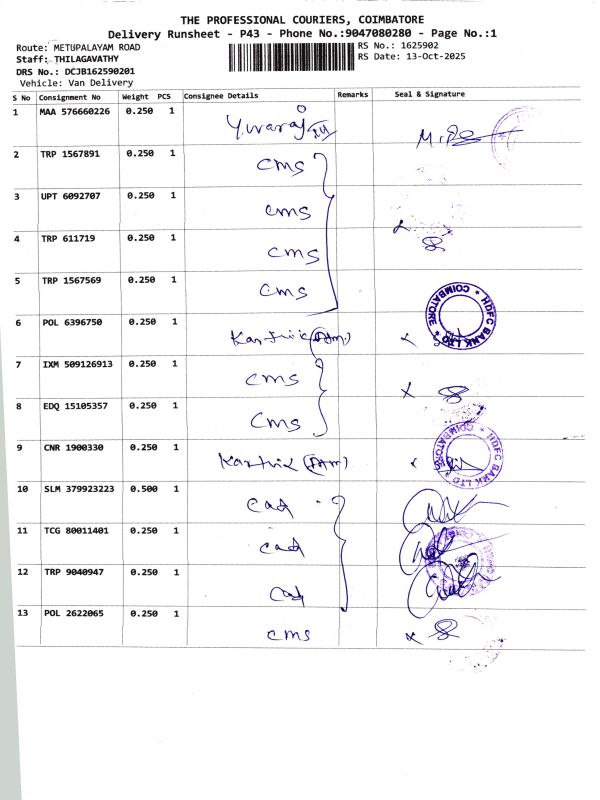 THE PROFESSIONAL COURIERS, COIMBATORE
Delivery Runsheet - P43 - Phone No.:9047080280 - Page No.:1
Route: METUPALAYAM ROAD RS No.: 1625902
Staff: THILAGAVATHY RS Date: 13-Oct-2025
DRS No.: DCJB162590201
Vehicle: Van Delivery
S No Consignment No Weight PCS Consignee Details Remarks Seal & Signature
1 MAA 576660226 0.250 1 Yuvaraj
2 TRP 1567891 0.250 1 cms
3 UPT 6092707 0.250 1 cms
4 TRP 611719 0.250 1 cms
5 TRP 1567569 0.250 1 cms
HDFC BANK LTD * COIMBATORE *
6 POL 6396750 0.250 1 Karthik
7 IXM 509126913 0.250 1 cms
8 EDQ 15105357 0.250 1 cms
9 CNR 1900330 0.250 1 Karthik
HDFC BANK LTD * COIMBATORE *
10 SLM 379923223 0.500 1 cad
11 TCG 80011401 0.250 1 cad
12 TRP 9040947 0.250 1 cad
13 POL 2622065 0.250 1 cms